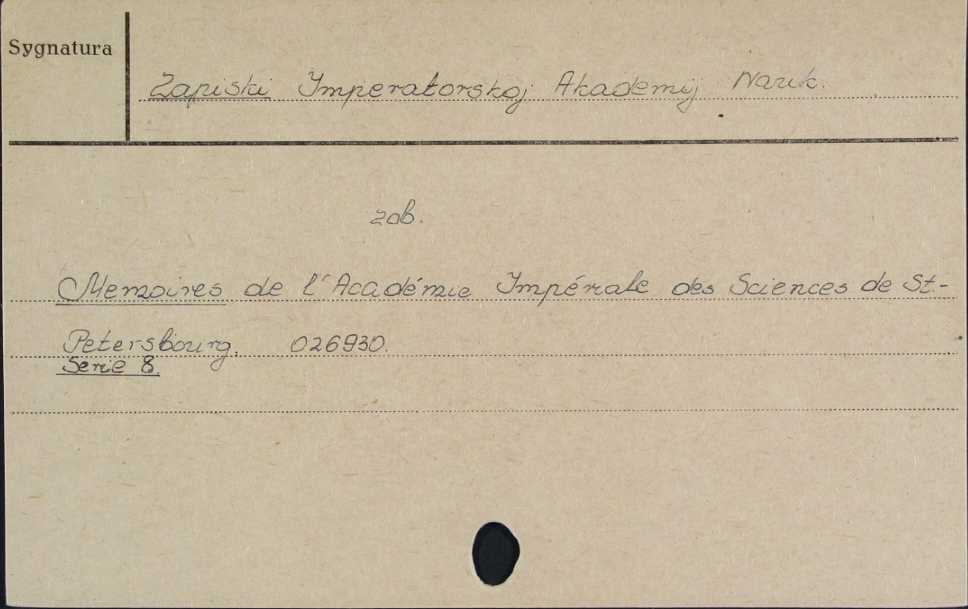 Sygnatura
Zapiski Imperatorskoj Akademij Nauk.
zob.
Memoires de l'Académie Impérale des Sciences de St.-
Petersbourg. 026930.
Serie 8.